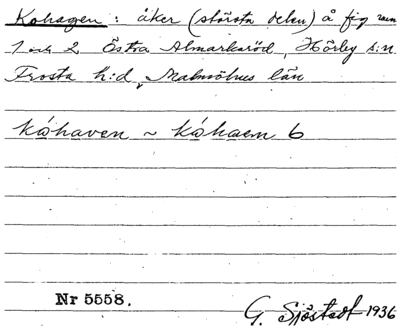 Kohagen: åker (största delen) å fig
1 och 2 Östra Almarksröd, Hörby s:n
Frosta h:d, Malmöhus län
kóhaven ~ kóhaem 6
Nr 5558.
G. Sjöstedt 1936